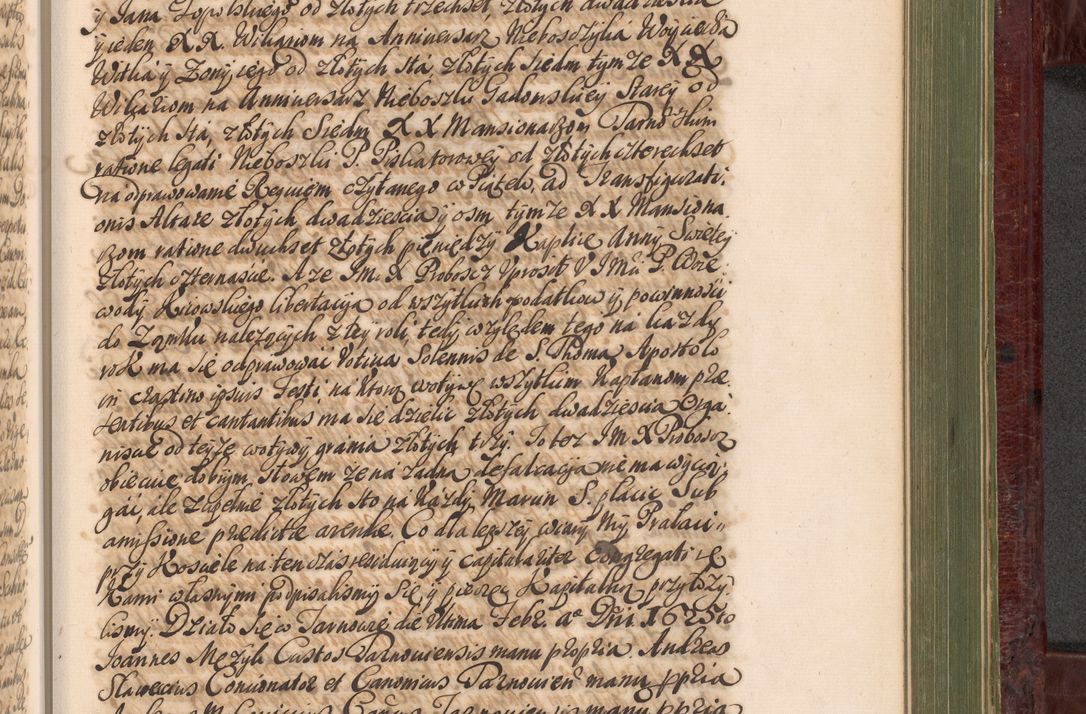 ÿ Jana Zopolskiego od złotych trzechset, złotych dwadziescia
ÿ ieden X X. Wikariom na Anniuersarz Nieboszczyka Woyciecha
Witka ÿ Zony iego od złotych sta, złotych siedm tymze X X
Wikariom na Anniuersarz Nieboszki Gadomskiey Starey od
złotych sta, złotych Siedm X X Mansionarzom Tarno
ratione legati Nieboszki P. Piskatorowey od złotych czterechset
na odprawowanie Requiem czytanego w Piątek, ad Transfigurati
onis Altare złotych dwadziescia ÿ osm tymze X X Mansiona
rzom ratione dwuchset złotych pieniędzy Kaplice Anny Swietej
złotych czternascie. A ze JM. X Proboszcz Vprosił V J M P. Woie
wody Kiiowskiego libertacija od wszytkich podatkow ÿ powinnosci
do Zamku nalezących z tey roli, tedy względem tego na kazdy
rok ma się odprawowac Votiua Solennis de S. Thoma Apostolo
in crastino ipsius Festi, na ktorą wotywę wszytkim Kapłanom prae
sentibus et cantantibus ma się dzielic złotych dwadziescia Orga
niscie od teyze wotywy grania złotych trzy. To tez JM X Proboszcz
obiecuie dobrym słowem ze na zadna defalcacija nie ma wycią
gac, ale zupełnie złotych sto na kazdy Marcin S. płacic Sub
amissione predictae arendae. Co dla lepszey wiary My Prałaci
przy Kosciele na ten czas residuiący ÿ capitulariter Congregati rę
kami własnymi podpisalismy się, ÿ pieczęc Kapitulną przyłozy
lismy. Działo się w Tarnowie die Vltima Febr. aº Dni 1625to
Joannes Mezyk Custos Tarnouiensis manu propria Andreas
Slawecius Concionator et Canonicus Tarnouien manu ppria